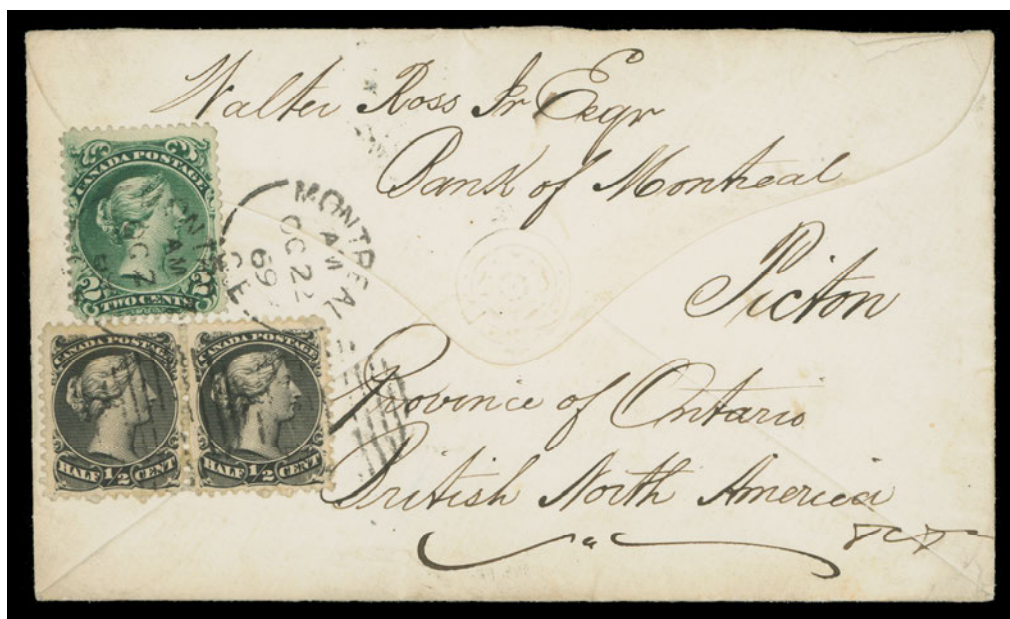 Walter Ross Jr Esqr
Bank of Montreal
Picton
Province of Ontario
British North America
CANADA POSTAGE
2 TWO CENTS 2
MONTREAL
AM
OC 22
69
C.E
AM
CANADA POSTAGE
HALF 1/2 CENT
CANADA POSTAGE
HALF 1/2 CENT